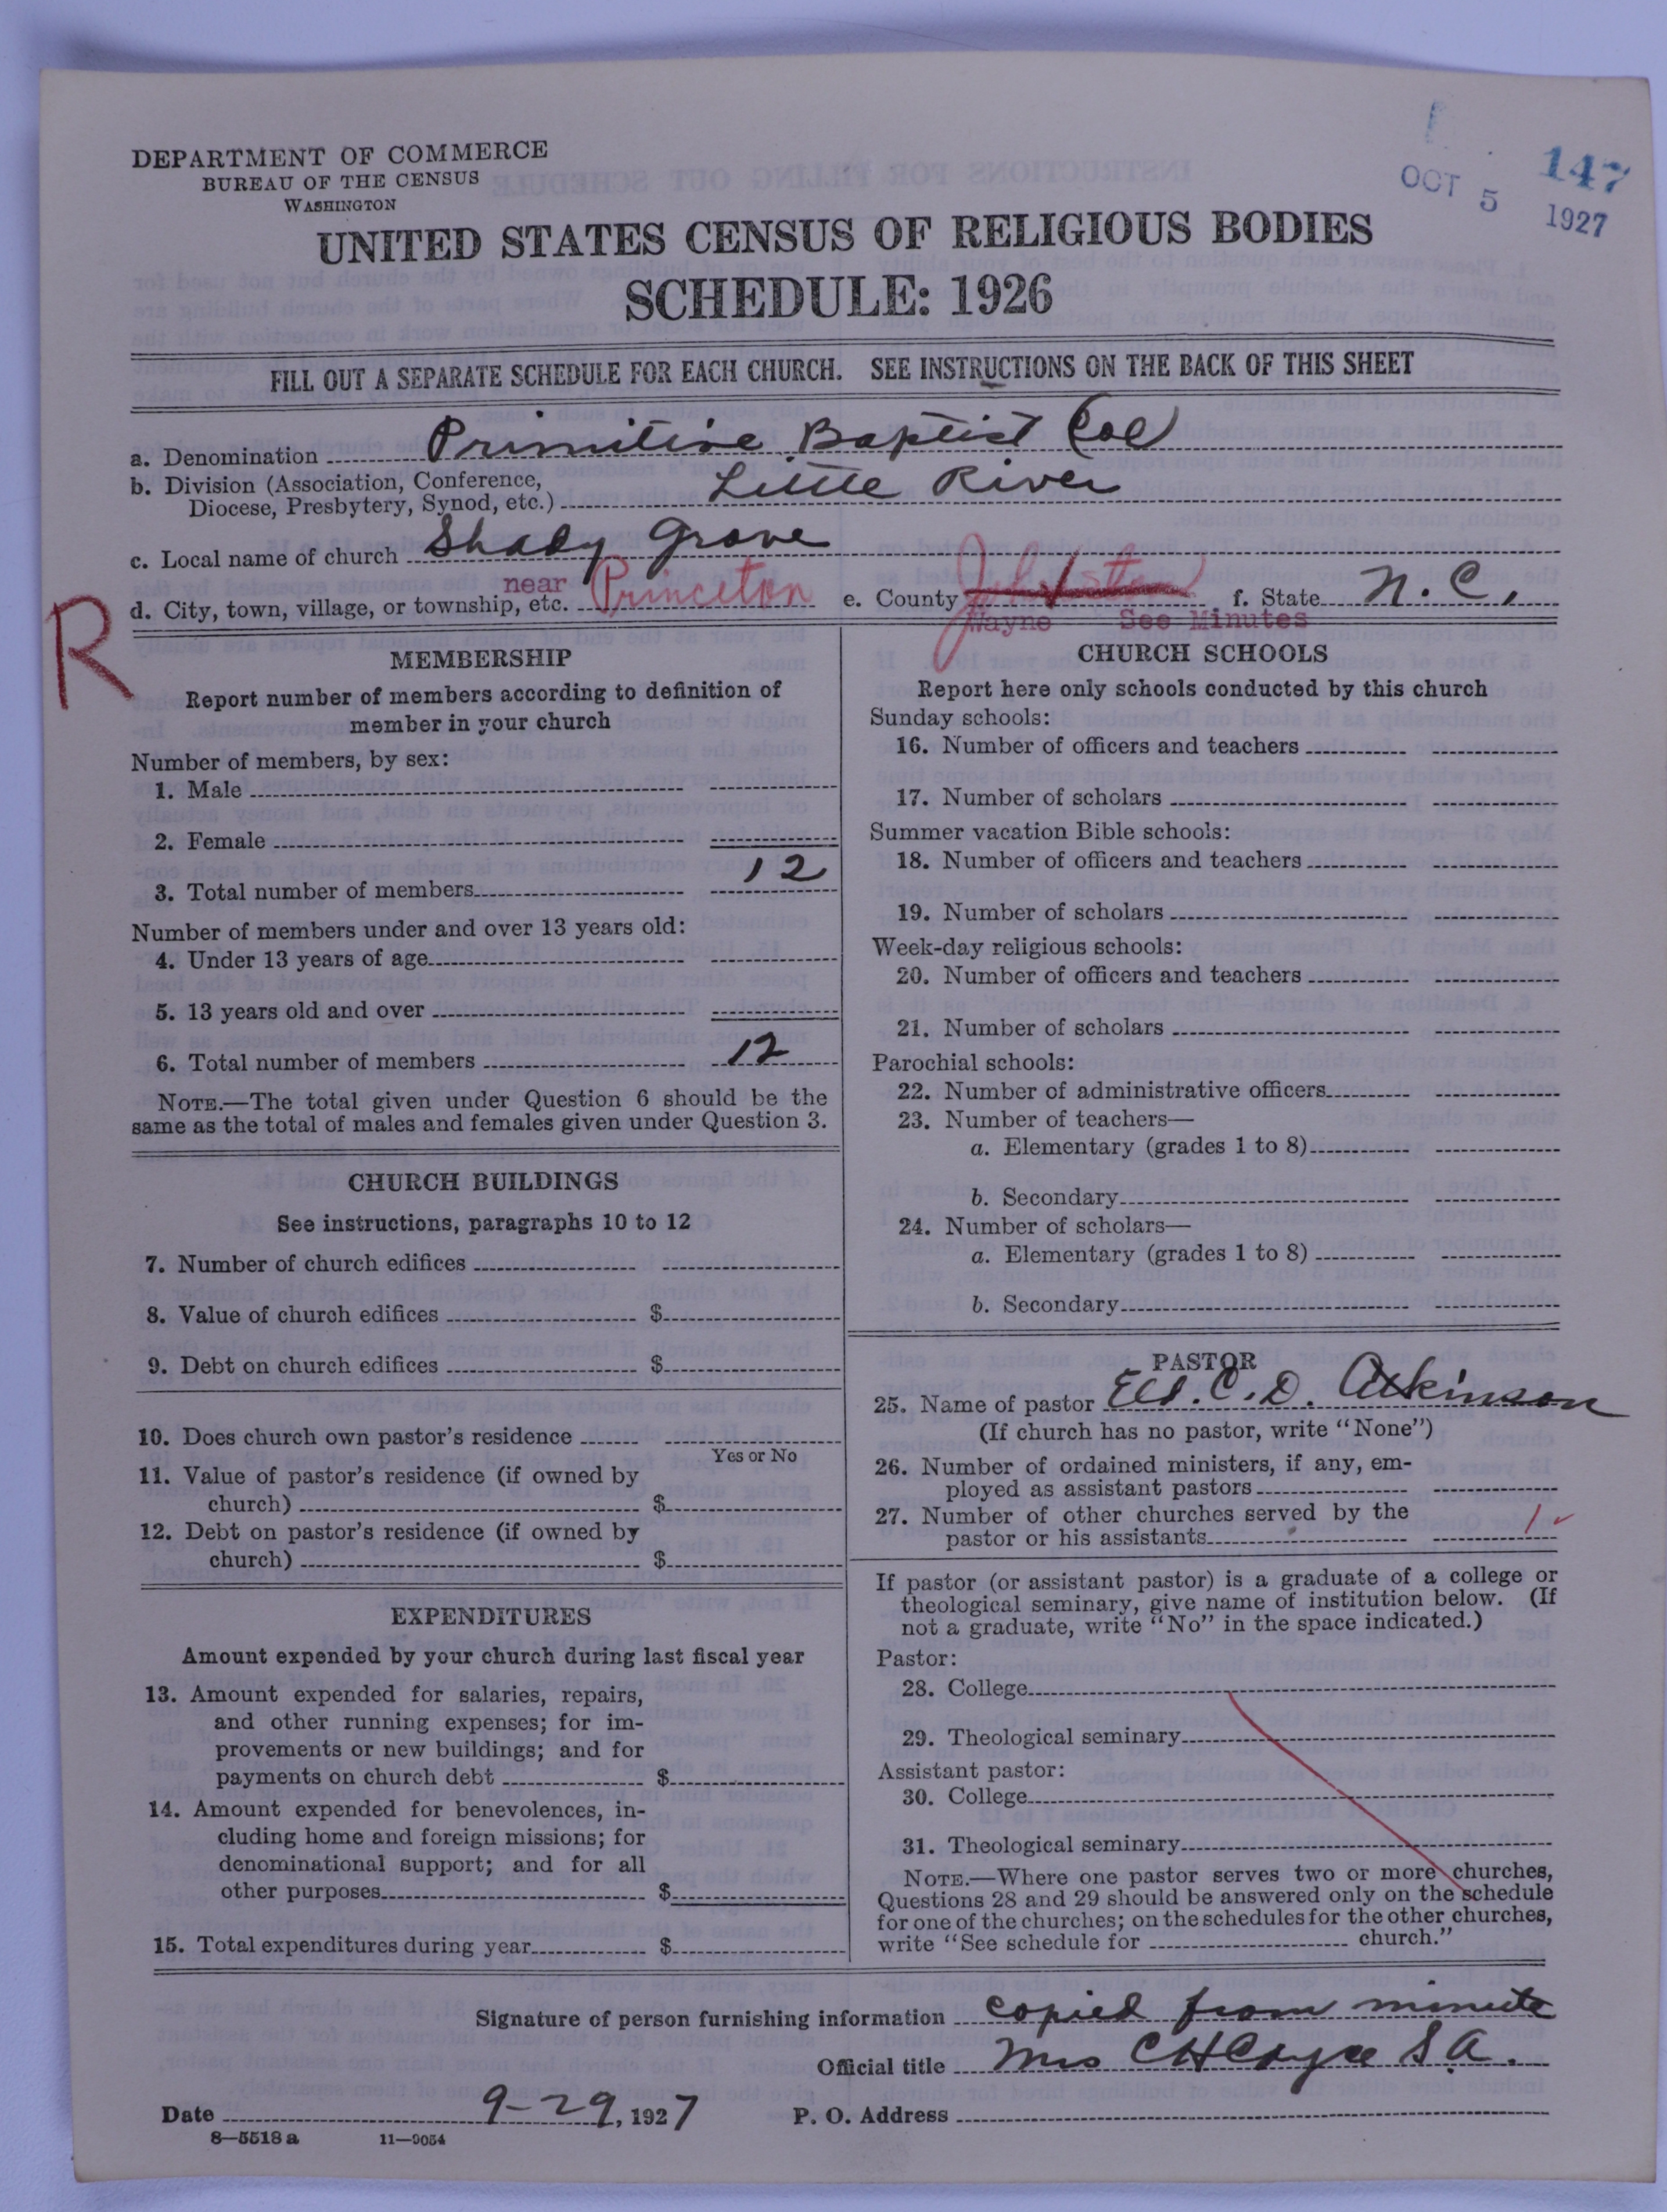 147
OCT 5 1927
DEPARTMENT OF COMMERCE
BUREAU OF THE CENSUS
WASHINGTON
UNITED STATES CENSUS OF RELIGIOUS BODIES
SCHEDULE: 1926
FILL OUT A SEPARATE SCHEDULE FOR EACH CHURCH. SEE INSTRUCTIONS ON THE BACK OF THIS SHEET
a. Denomination Primitive Baptist (Col)
b. Division (Association, Conference, Diocese, Presbytery, Synod, etc.) Little River
c. Local name of church Shady Grove
d. City, town, village, or township, etc. near Princeton e. County Johnston f. State N.C.
Wayne See Minutes
R
MEMBERSHIP
Report number of members according to definition of
member in your church
Number of members, by sex:
1. Male
2. Female
3. Total number of members 12
Number of members under and over 13 years old:
4. Under 13 years of age
5. 13 years old and over
6. Total number of members 12
NOTE.—The total given under Question 6 should be the
same as the total of males and females given under Question 3.
CHURCH BUILDINGS
See instructions, paragraphs 10 to 12
7. Number of church edifices
8. Value of church edifices $
9. Debt on church edifices $
10. Does church own pastor's residence
Yes or No
11. Value of pastor's residence (if owned by
church) $
12. Debt on pastor's residence (if owned by
church) $
EXPENDITURES
Amount expended by your church during last fiscal year
13. Amount expended for salaries, repairs,
and other running expenses; for im-
provements or new buildings; and for
payments on church debt $
14. Amount expended for benevolences, in-
cluding home and foreign missions; for
denominational support; and for all
other purposes $
15. Total expenditures during year $
CHURCH SCHOOLS
Report here only schools conducted by this church
Sunday schools:
16. Number of officers and teachers
17. Number of scholars
Summer vacation Bible schools:
18. Number of officers and teachers
19. Number of scholars
Week-day religious schools:
20. Number of officers and teachers
21. Number of scholars
Parochial schools:
22. Number of administrative officers
23. Number of teachers—
a. Elementary (grades 1 to 8)
b. Secondary
24. Number of scholars—
a. Elementary (grades 1 to 8)
b. Secondary
PASTOR
25. Name of pastor Eld. C. D. Atkinson
(If church has no pastor, write "None")
26. Number of ordained ministers, if any, em-
ployed as assistant pastors
27. Number of other churches served by the
pastor or his assistants 1
If pastor (or assistant pastor) is a graduate of a college or
theological seminary, give name of institution below. (If
not a graduate, write "No" in the space indicated.)
Pastor:
28. College
29. Theological seminary
Assistant pastor:
30. College
31. Theological seminary
NOTE.—Where one pastor serves two or more churches,
Questions 28 and 29 should be answered only on the schedule
for one of the churches; on the schedules for the other churches,
write "See schedule for church."
Signature of person furnishing information copied from minute
Official title Mrs C H Cayce S.A.
Date 9-29, 1927 P. O. Address
8—5518 a 11—9054